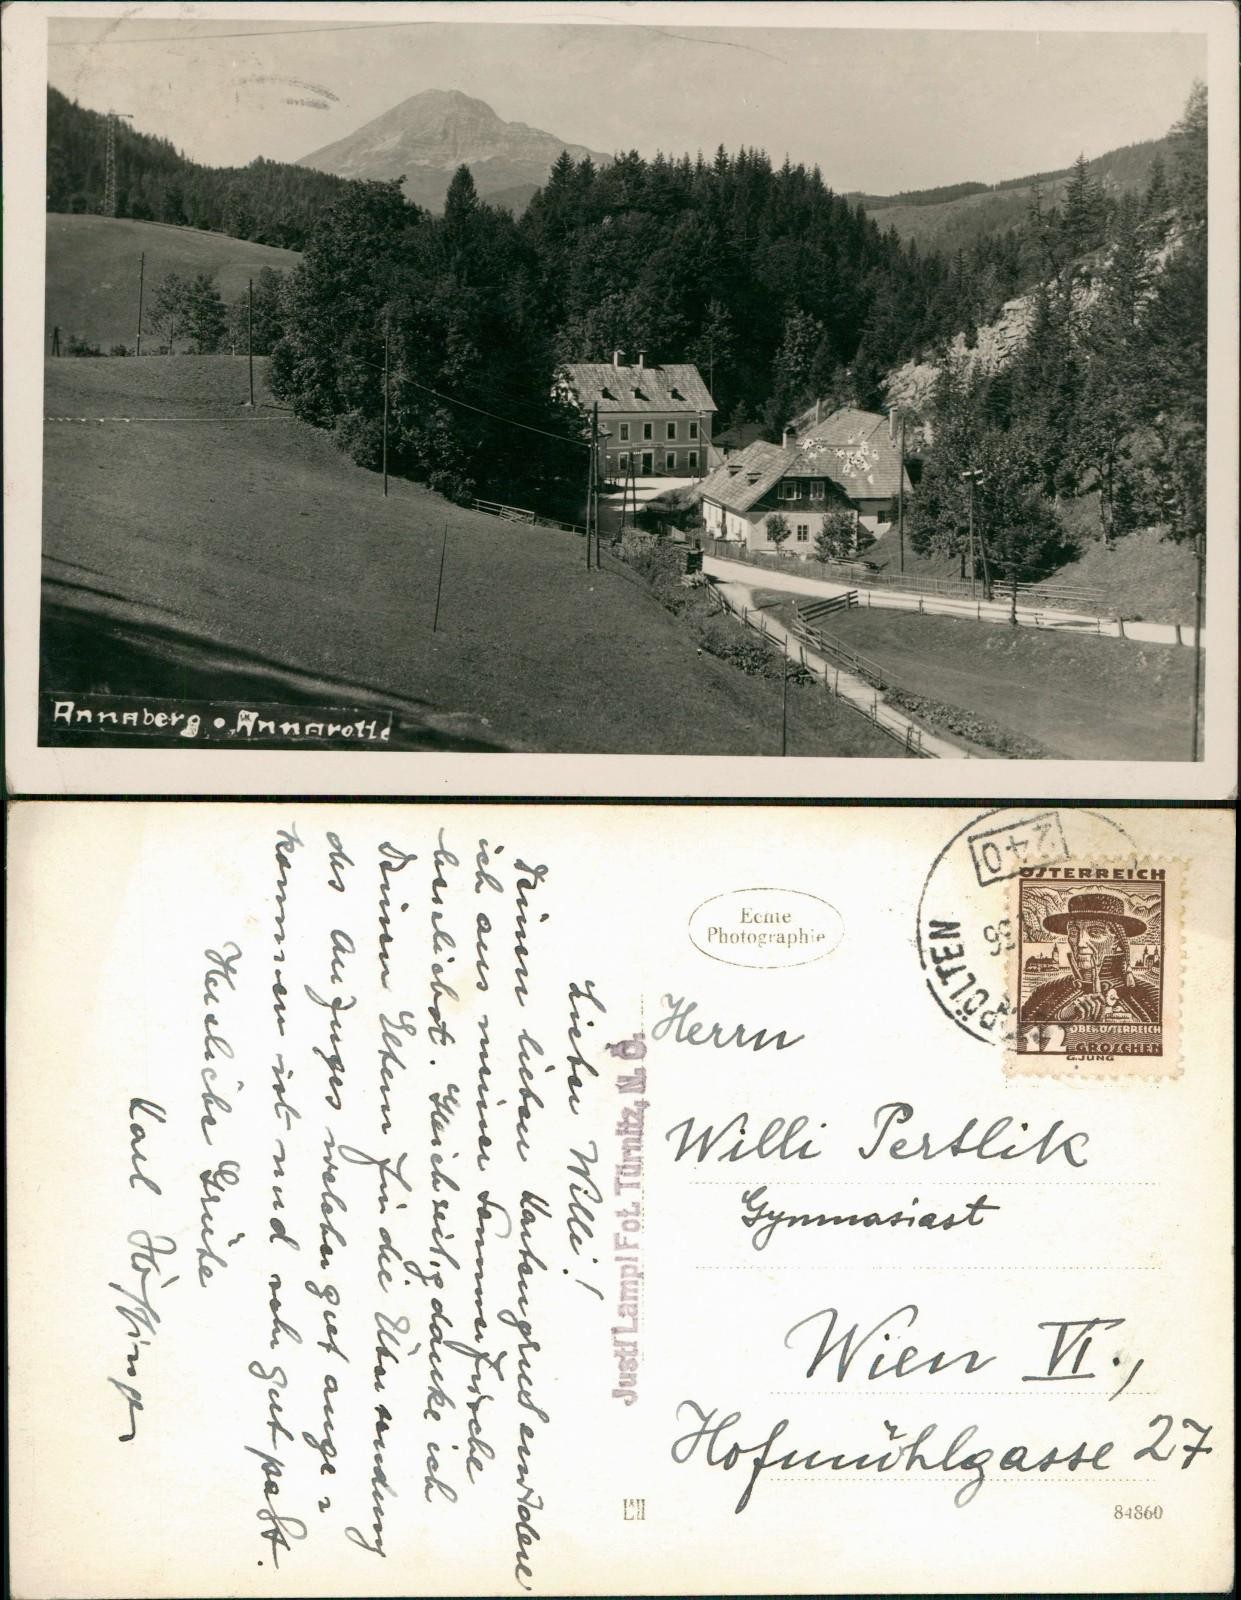 Annaberg • Annarotte
Lieber Willi!
Deinen lieben Kartengruß erwidere
ich aus meiner Sommerfrische
herzlichst. Gleichzeitig danke ich
Deinen Eltern für die Übersendung
des Anzuges welcher gut ange-
kommen ist und sehr gut paßt.
Herzliche Grüße
Karl
Echte
Photographie
240
PÖLTEN
ÖSTERREICH
OBERÖSTERREICH
12 GROSCHEN
G.JUNG
Herrn
Willi Perslik
Gymnasiast
Wien VI.,
Hofmühlgasse 27
Lampl Fot. Türnitz, N. Ö.
84860